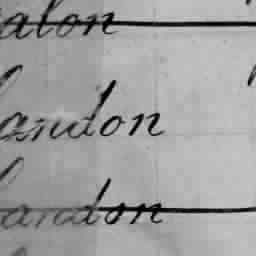 alon
andon
andon